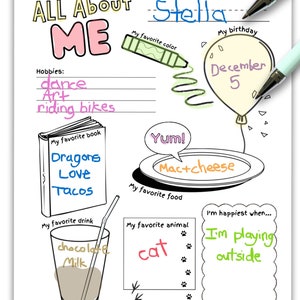 ALL ABOUT
ME
Stella
My favorite color
My birthday
December
5
Hobbies:
dance
Art
riding bikes
My favorite book
Dragons
Love
Tacos
Yum!
Mac+cheese
My favorite food
My favorite drink
chocolate
Milk
My favorite animal
cat
I'm happiest when...
I'm playing
outside